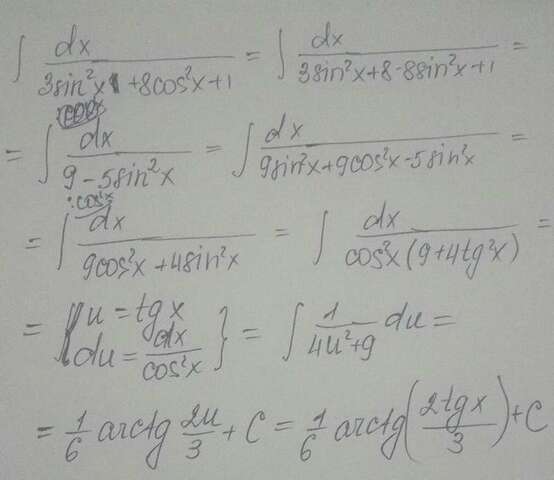 ∫ dx/(3sin²x + 8cos²x + 1) = ∫ dx/(3sin²x + 8 - 8sin²x + 1) =
= ∫ dx/(9 - 5sin²x) = ∫ dx/(9sin²x + 9cos²x - 5sin²x) =
= ∫ dx/(9cos²x + 4sin²x) = ∫ dx/(cos²x (9 + 4tg²x)) =
= { u = tg x
du = dx/cos²x } = ∫ 1/(4u² + 9) du =
= 1/6 arctg 2u/3 + C = 1/6 arctg(2tgx/3) + C